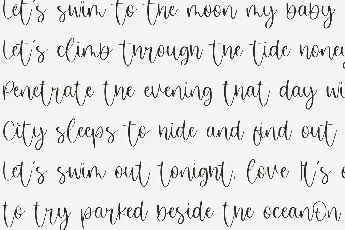 let's swim to the moon my baby
let's climb through the tide honey
Penetrate the evening that day
City sleeps to hide and find out
let's swim out tonight, love It's
to try parked beside the ocean